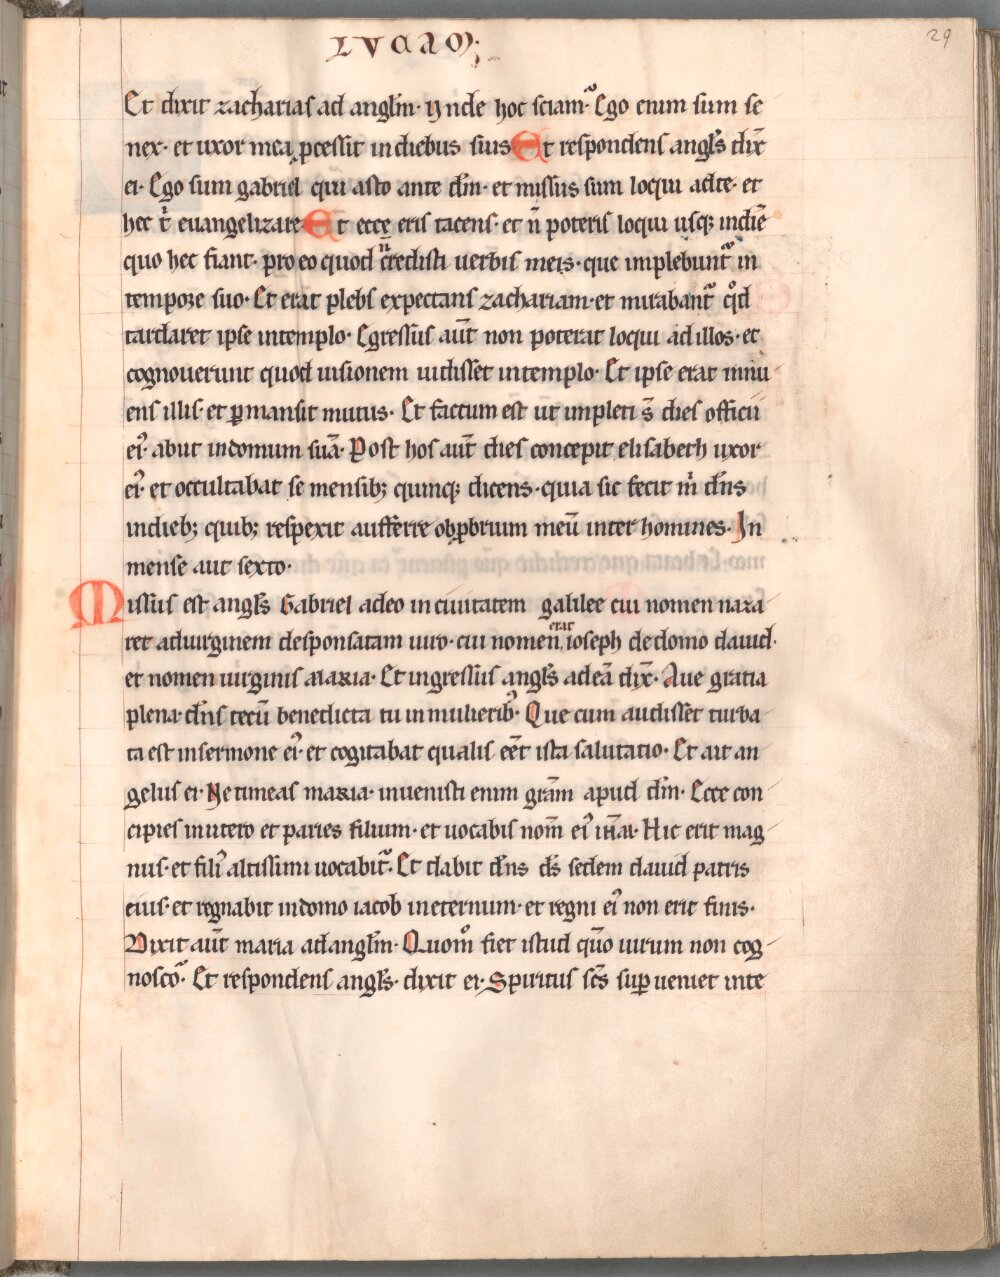 LVCAM;
29
Et dixit zacharias ad angl̄m· Vnde hoc sciam· Ego enim sum se
nex· et uxor mea p̱cessit in diebus suis Et respondens angl̄s dix̄
ei· Ego sum gabriel qui asto ante dm̄· et missus sum loqui ad te· et
hec t̍ euangelizare Et ecce eris tacens· et n̄ poteris loqui usq; in diē
quo hec fiant· pro eo quod n̄ credisti uerbis meis· que implebunt᷑ in
tempore suo· Et erat plebs expectans zachariam· et mirabant᷑ qd̊
tardaret ipse in templo· Egressus aūt non poterat loqui ad illos· et
cognouerunt quod uisionem uidisset in templo· Et ipse erat innu
ens illis· et ꝑmansit mutus· Et factum est ut impleti s̄ dies officii
ei᾽ abiit in domum suā· Post hos aūt dies concepit elisabeth uxor
ei᾽ et occultabat se mensib; quinq; dicens· quia sic fecit m̍ dn̄s
in dieb; quib; respexit aufferre obꝓbrium meū inter homines· In
mense aut sexto·
Missus est angl̄s Gabriel a deo in ciuitatem galilee cui nomen naza
ret ad uirginem desponsatam uiro· cui nomen erat ioseph de domo dauid·
et nomen uirginis maria· Et ingressus angl̄s ad eā dix̄· Aue gratia
plena· dn̄s tecū benedicta tu in mulierib᾽· Que cum audisset turba
ta est in sermone ei᾽ et cogitabat qualis eēt ista salutatio· Et ait an
gelus ei· Ne timeas maria· inuenisti enim grām apud dm̄· Ecce con
cipies in utero et paries filium· et uocabis nom̄ ei᾽ ih̄m· Hic erit mag
nus· et fili᾽ altissimi uocabit᷑· Et dabit dn̄s ds̄ sedem dauid patris
eius· et regnabit in domo iacob in eternum· et regni ei᾽ non erit finis·
Dixit aūt maria ad angl̄m· Quom̊ fiet istud qūo uirum non cog
nosco· Et respondens angl̄s· dixit ei· Spiritus sc̄s suꝑ ueniet in te